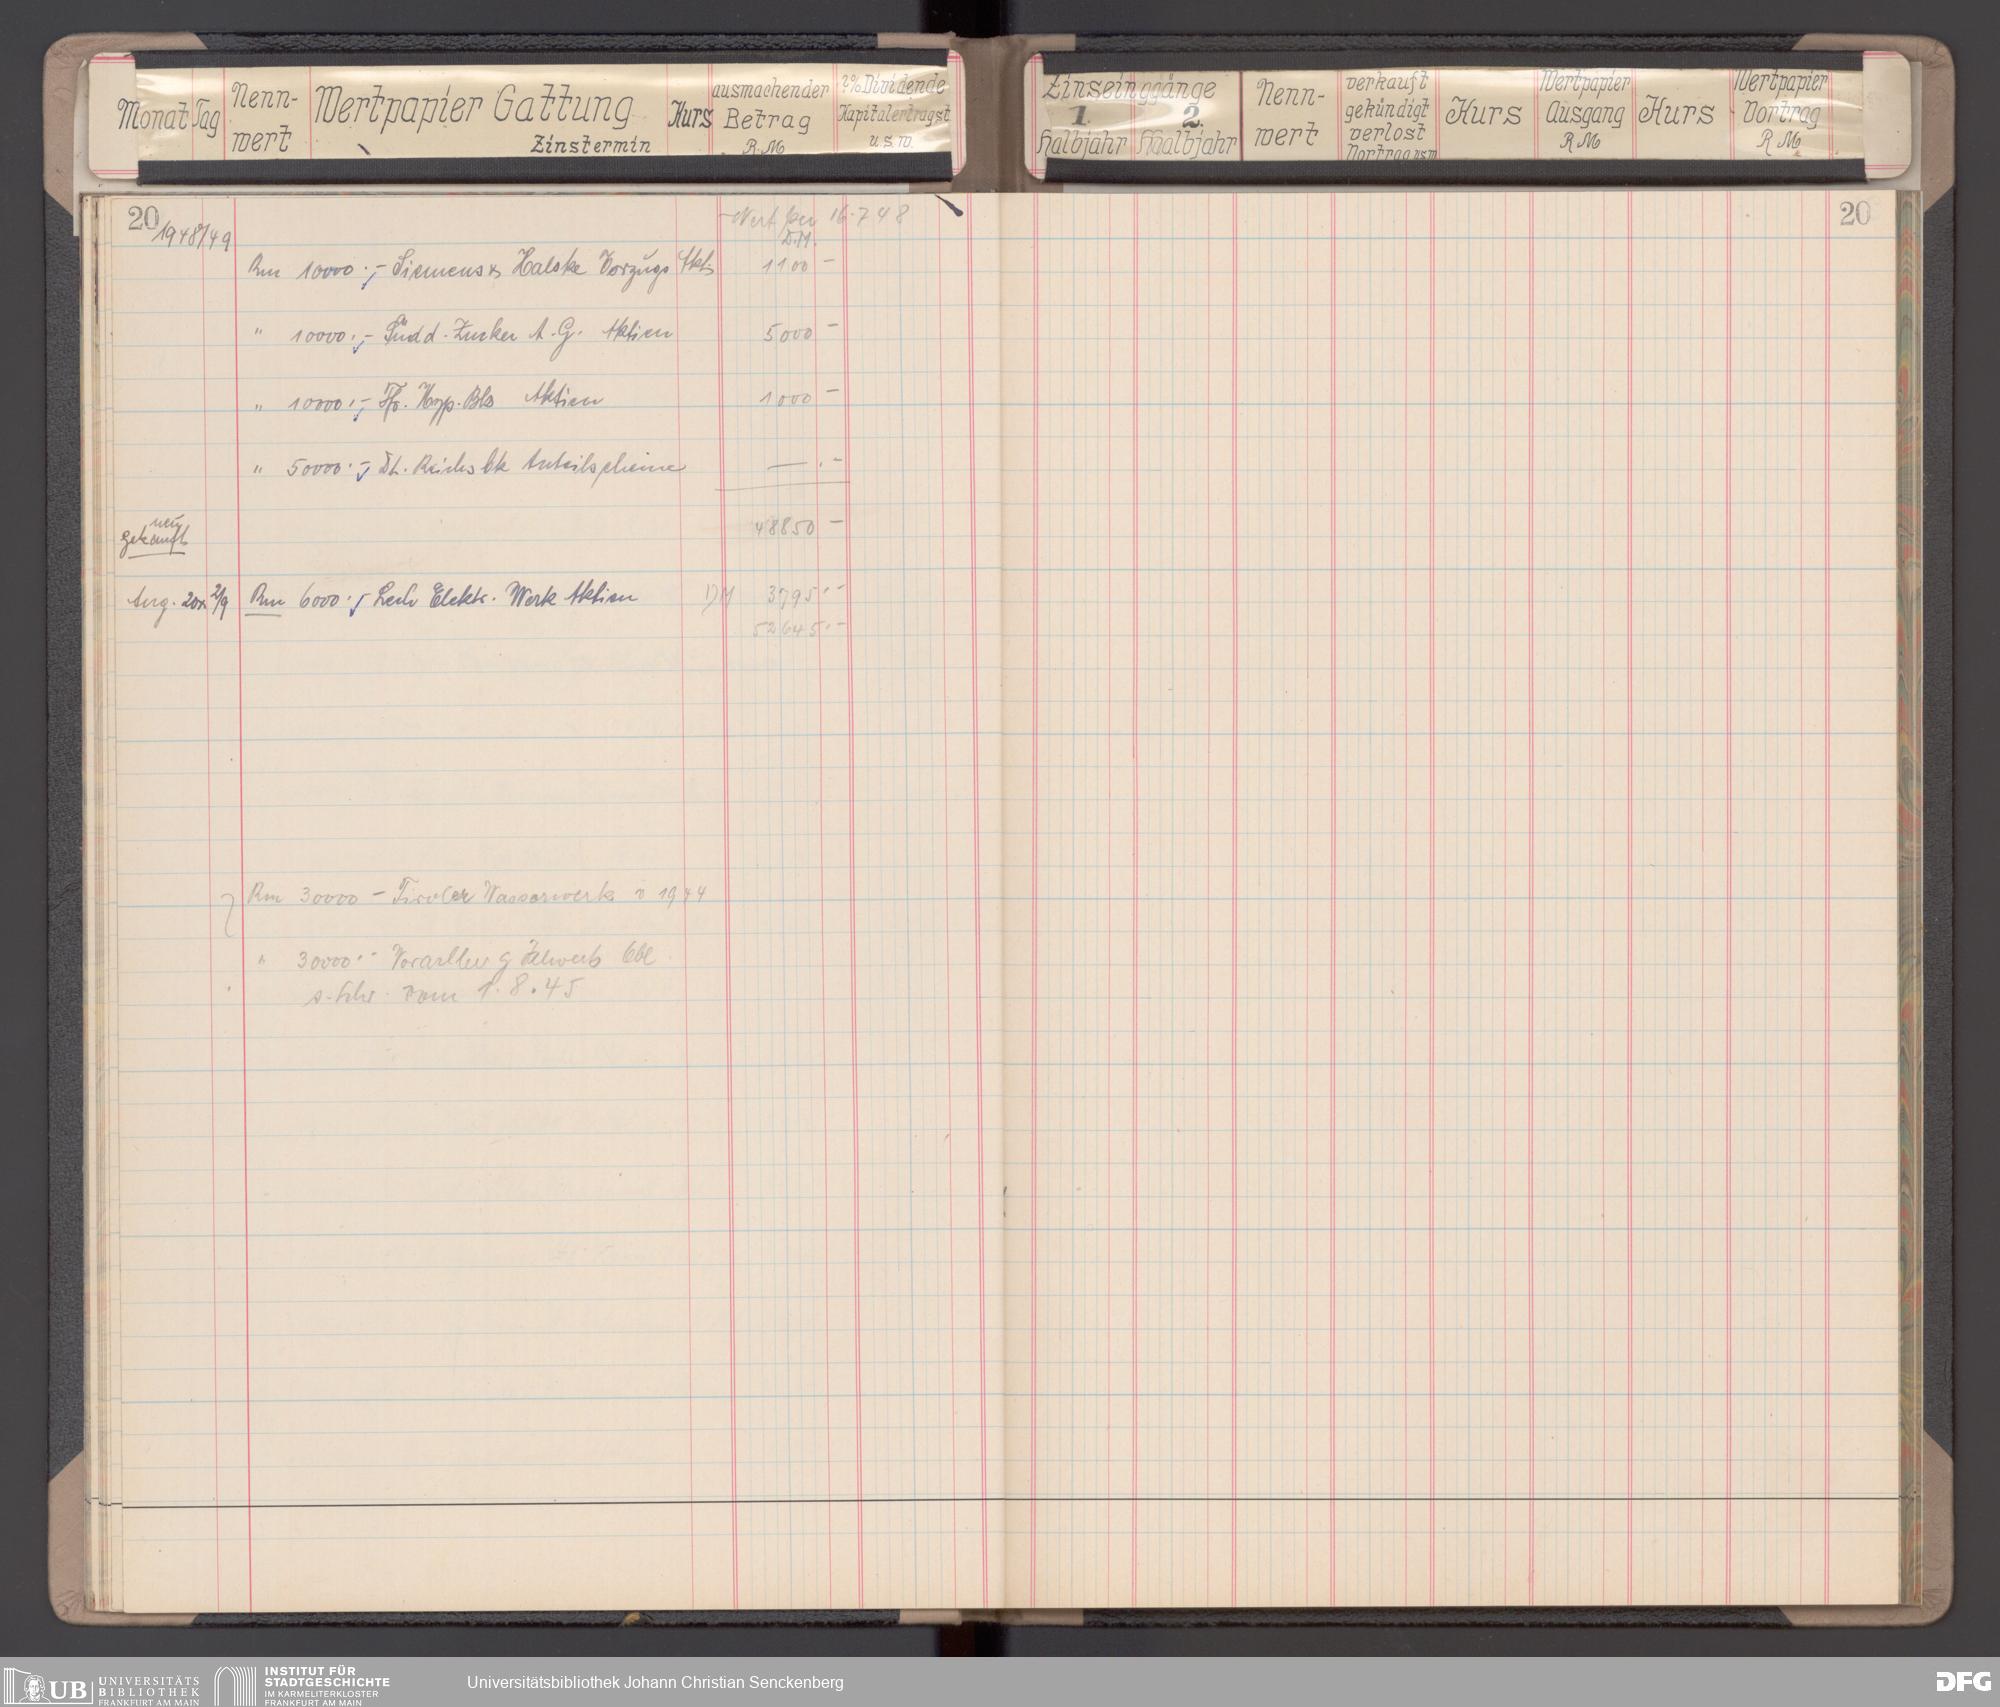 Monat Tag Nenn-wert Wertpapier Gattung Zinstermin Kurs ausmachender Betrag R.M ?% Dividende Kapitalertragst u.s.w.
Zinseinggänge 1 Halbjahr 2. Halbjahr Nenn-wert verkauft gekündigt verlost Vortrag usw Kurs Wertpapier Ausgang RM Kurs Wertpapier Vortrag RM
20
20
1948/49
Wert per 16.7 48
D.M.
Rm 10000.- Siemens & Halske Vorzugs Akt. 1100 -
" 10000.- Südd. Zucker A.G. Aktien 5000 -
" 10000.- Hyp. Bk Aktien 1000 -
" 50000.- Dt. Reichsbk Anteilscheine — . -
48850 -
neu
gekauft
Aug. 2/9 Rm 6000.- Lech Elektr. Werk Aktien DM 3795.-
52645.-
Rm 30000 - Tiroler Wasserwerk v 1944
" 30000.- Vorarlberg
vom 1.8.45
UB UNIVERSITÄTS
BIBLIOTHEK
FRANKFURT AM MAIN
INSTITUT FÜR
STADTGESCHICHTE
IM KARMELITERKLOSTER
FRANKFURT AM MAIN
Universitätsbibliothek Johann Christian Senckenberg
DFG